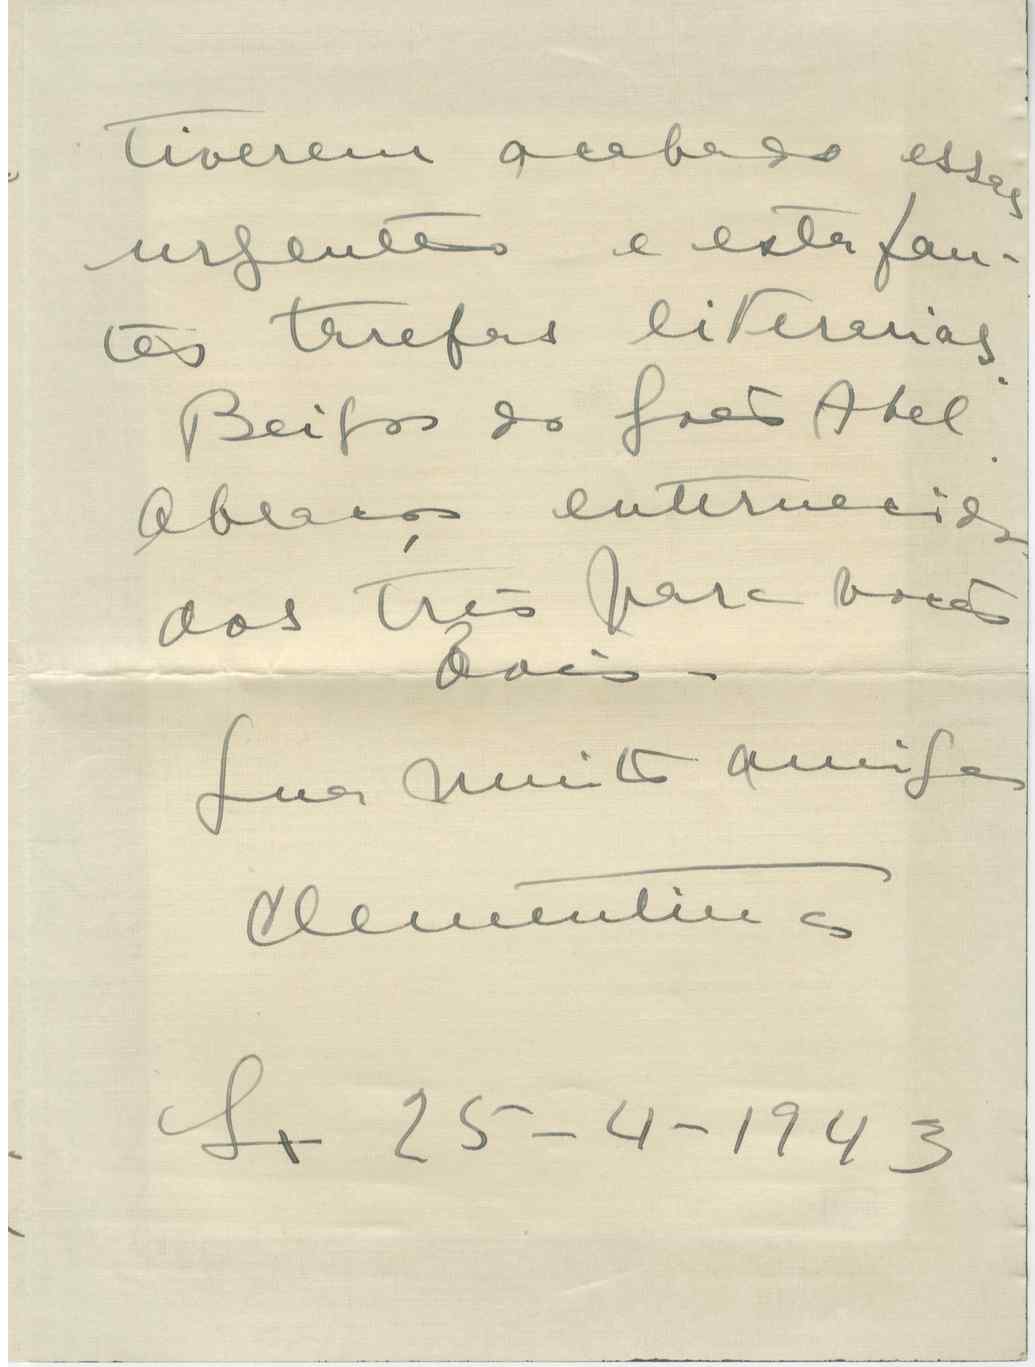 tiverem acabado essas
urgentes e estafan-
tes tarefas literarias.
Beijos do João Abel.
Abraços enternecidos
dos três para vocês
dois -
Sua muito amiga
Clementina
Lx 25-4-1943